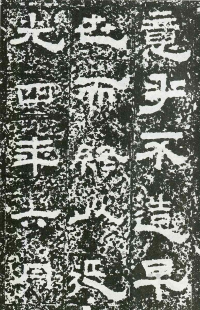 意乎不造早
世而終以延
光四年六月